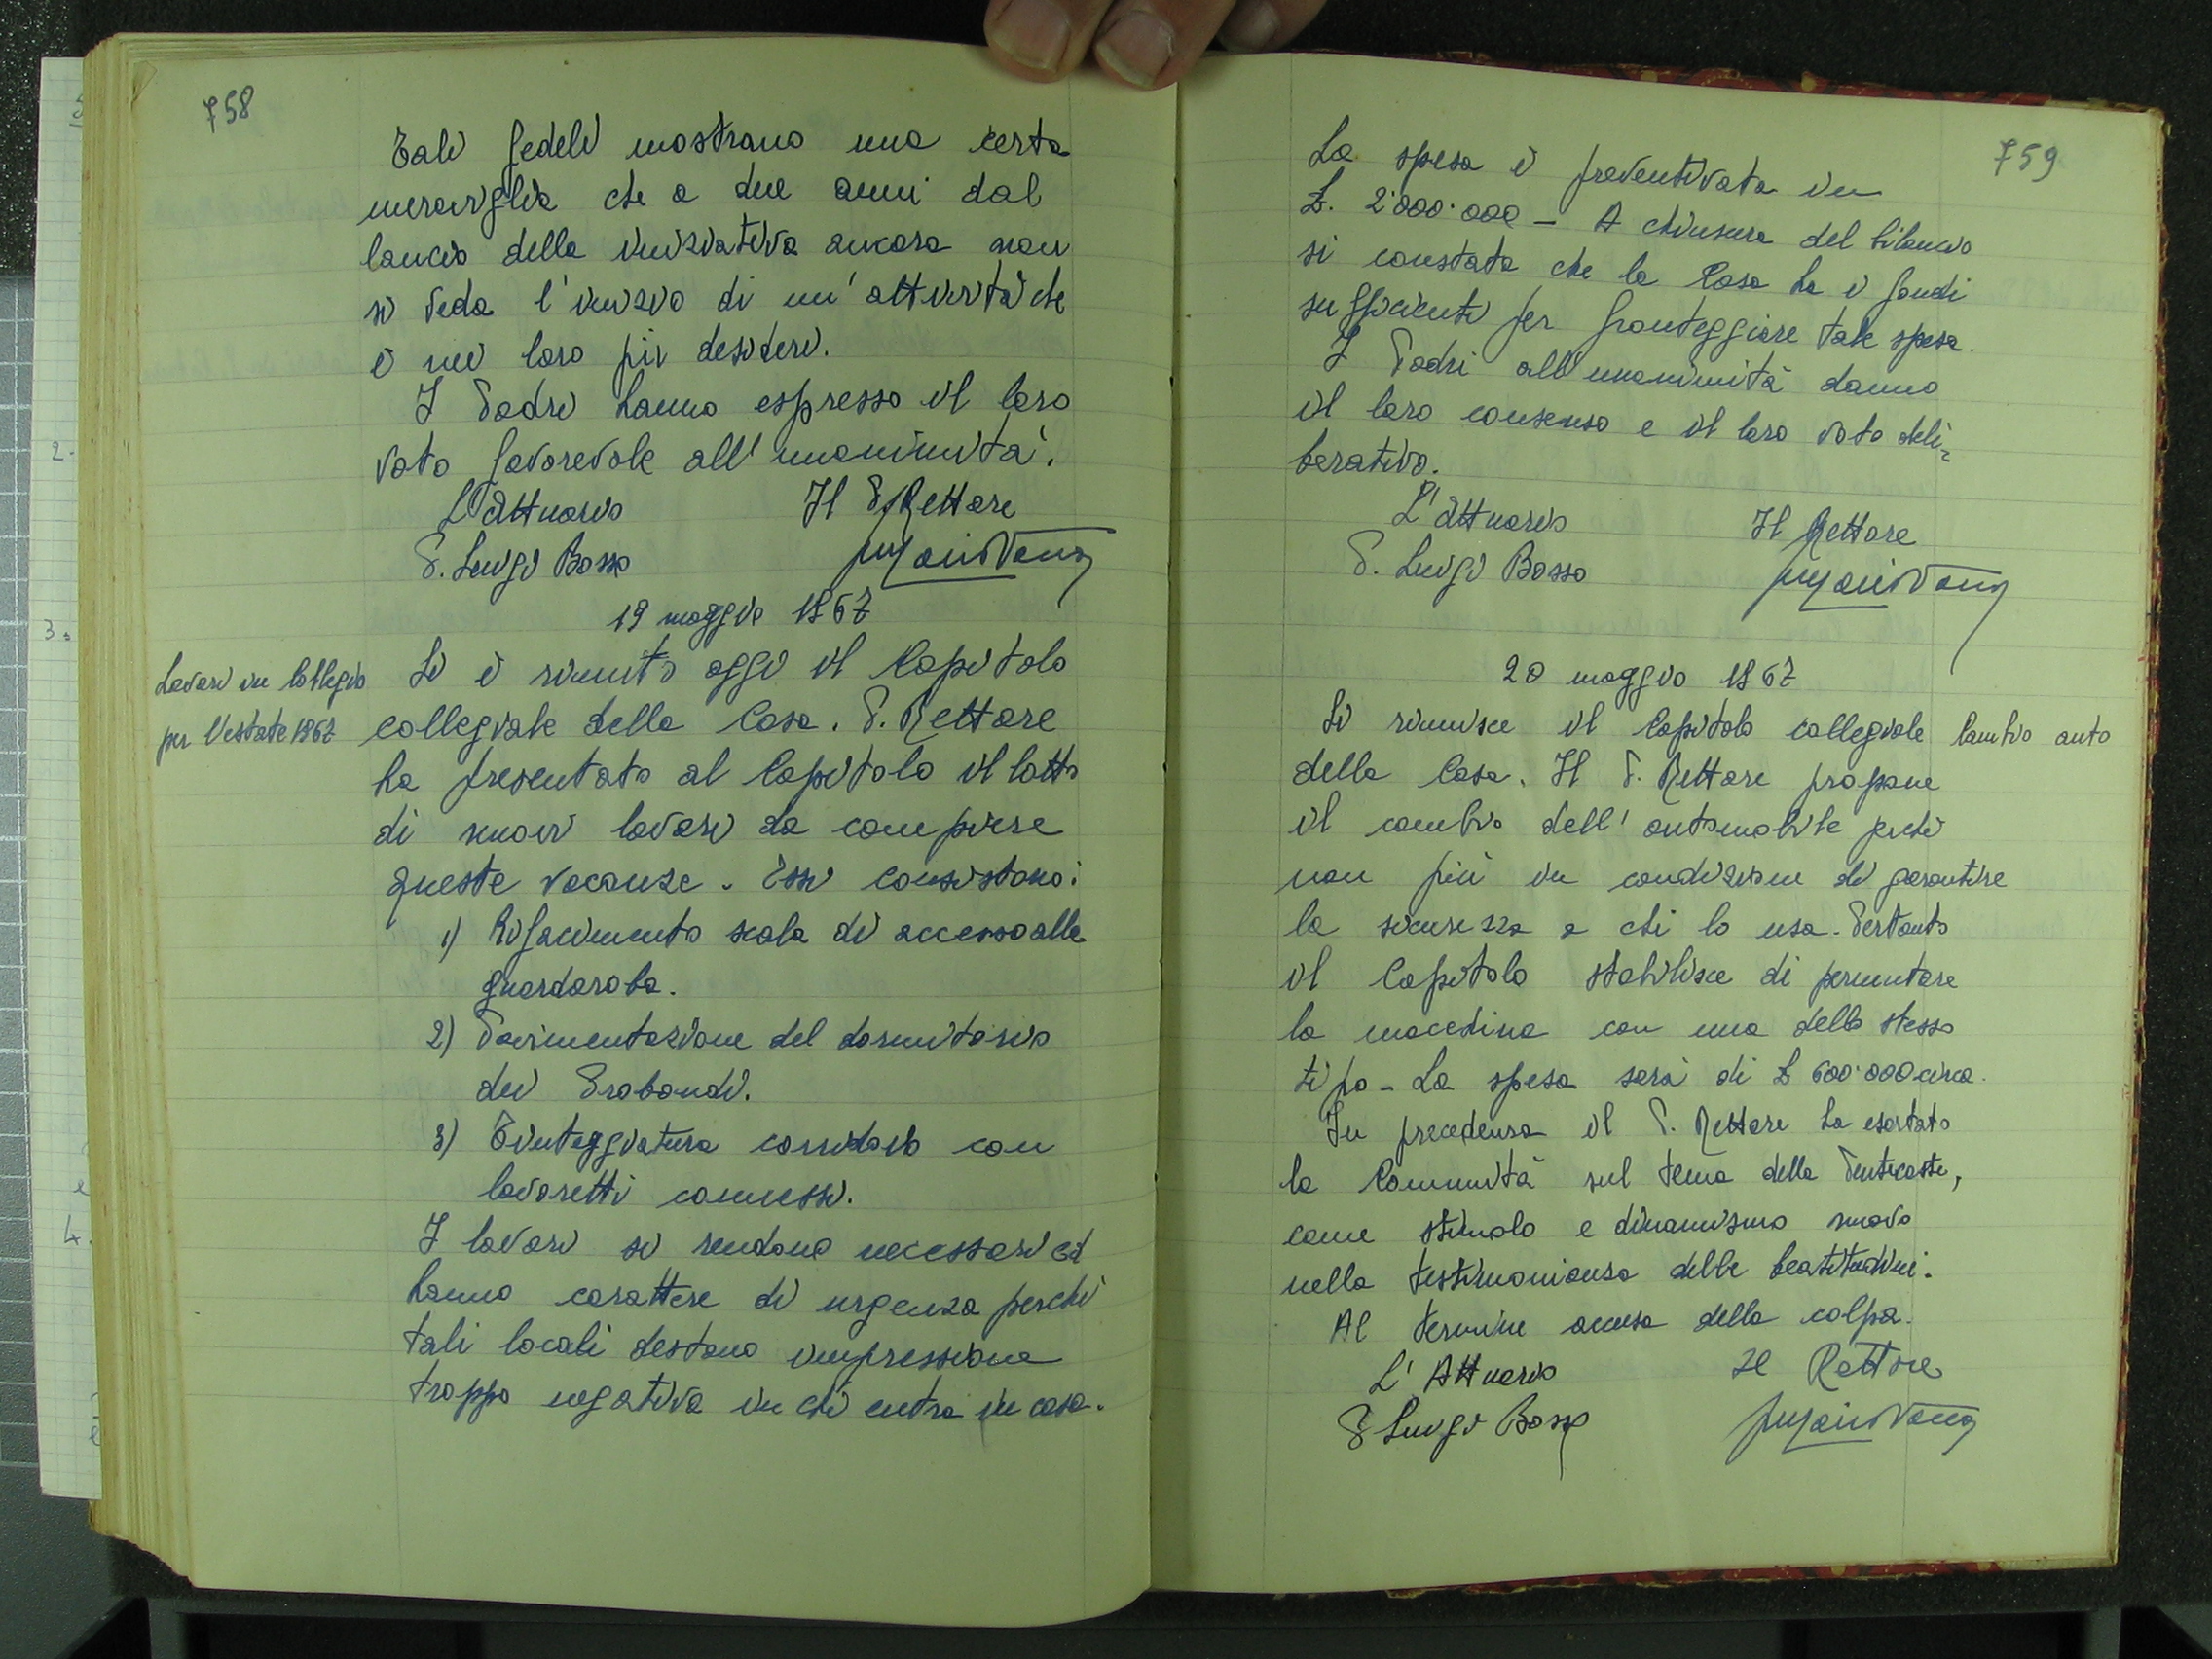 758
Tali fedeli mostrano una certa
meraviglia che a due anni dal
lancio della iniziativa ancora non
si veda l'inizio di un'attività che
è nei loro più desideri.
I Padri hanno espresso il loro
voto favorevole all'unanimità.
L'Attuario Il P. Rettore
P. Luigi Bosso
19 maggio 1967
Lavori in Collegio
per l'estate 1967
Si è riunito oggi il Capitolo
collegiale della Casa. P. Rettore
ha presentato al Capitolo il lotto
di nuovi lavori da compiere
queste vacanze. Essi consistono:
1) Rifacimento scala di accesso alla
guardaroba.
2) Pavimentazione del dormitorio
dei Probandi.
3) Tinteggiatura corridoio con
lavoretti connessi.
I lavori si rendono necessari ed
hanno carattere di urgenza perché
tali locali destano impressione
troppo negativa in chi entra in casa.
759
La spesa è preventivata in
£. 2'000'000 - A chiusura del bilancio
si constata che la Casa ha i fondi
sufficienti per fronteggiare tale spesa.
I Padri all'unanimità danno
il loro consenso e il loro voto deli-
berativo.
L'Attuario Il Rettore
P. Luigi Bosso
20 maggio 1967
Cambio auto
Si riunisce il Capitolo collegiale
della Casa. Il P. Rettore propone
il cambio dell'automobile perché
non più in condizione di garantire
la sicurezza a chi lo usa. Pertanto
il Capitolo stabilisce di permutare
la macchina con una dello stesso
tipo - La spesa sarà di £ 600'000 circa.
In precedenza il P. Rettore ha esortato
la Comunità sul tema della Pentecoste,
come stimolo e dinamismo nuovo
nella testimonianza delle beatitudini.
Al termine accusa della colpa.
L'Attuario Il Rettore
P Luigi Bosso
2.
3.
4.